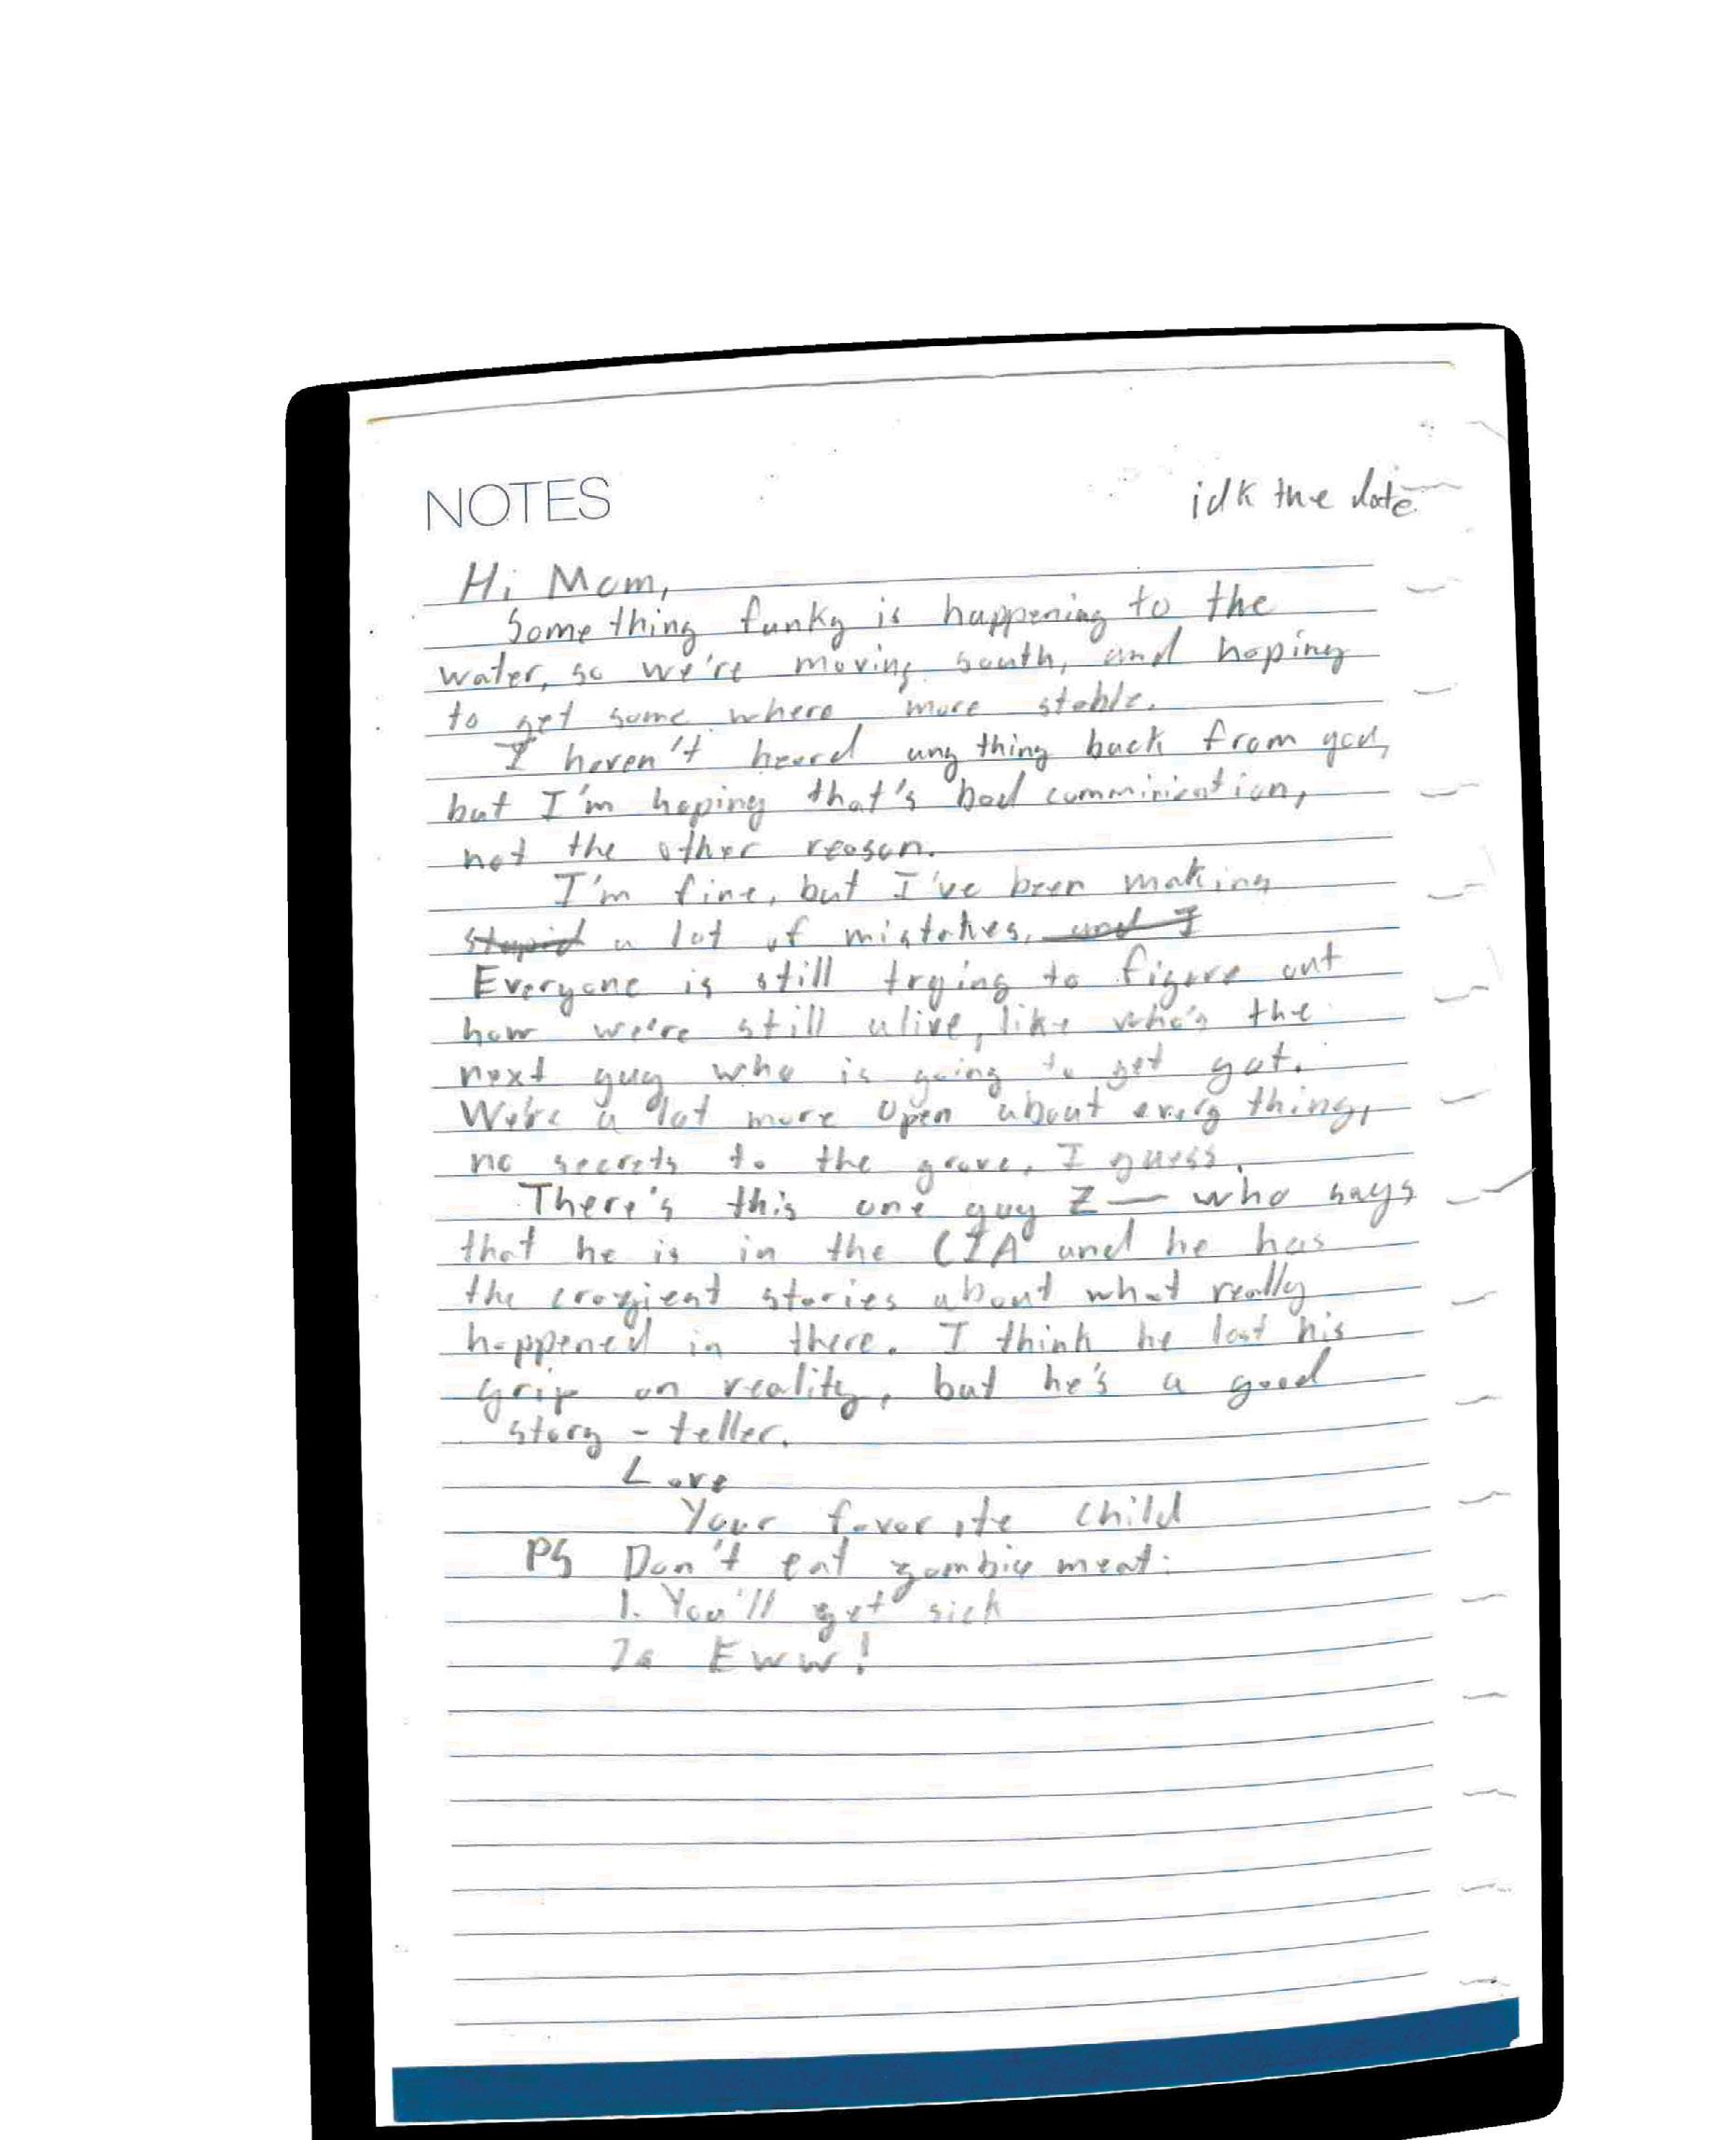 NOTES
idk the date
Hi Mom,
Something funky is happening to the
water, so we're moving south, and hoping
to get some where more stable.
I haven't heard any thing back from you,
but I'm hoping that's bad comminication,
not the other reason.
I'm fine, but I've been making
stupid a lot of mistakes. and I
Everyone is still trying to figure out
how we're still alive, like who's the
next guy who is going to get got.
We're a lot more open about every thing,
no secrets to the grave, I guess.
There's this one guy Z— who says
that he is in the CIA and he has
the craziest stories about what really
happened in there. I think he lost his
grip on reality, but he's a good
story - teller.
Love
Your favorite child
PS Don't eat zombie meat:
1. You'll get sick
2. Eww!